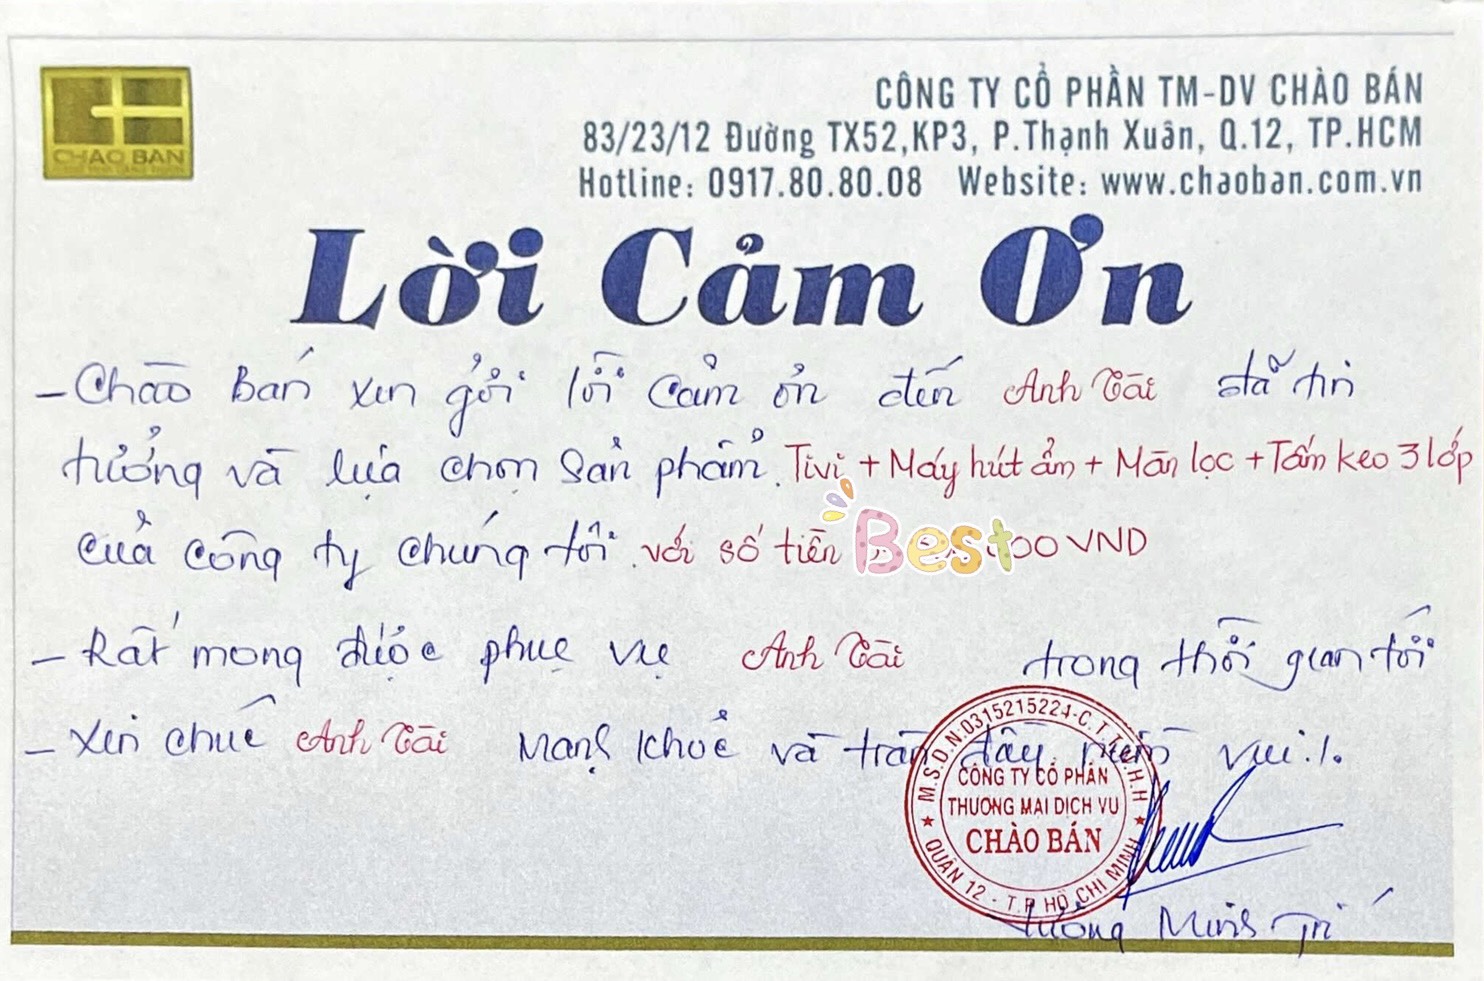 CHAO BAN
CÔNG TY CỔ PHẦN TM-DV CHÀO BÁN
83/23/12 Đường TX52,KP3, P.Thạnh Xuân, Q.12, TP.HCM
Hotline: 0917.80.80.08 Website: www.chaoban.com.vn
Lời Cảm Ơn
- Chào Bán xin gửi lời cảm ơn đến Anh Tài đã tin
tưởng và lựa chọn sản phẩm. Tivi + Máy hút ẩm + Màn lọc + Tấm keo 3 lớp
của công ty chúng tôi. với số tiền Best 000 VND
- Rất mong được phục vụ Anh Tài trong thời gian tới
- Xin chúc Anh Tài mạnh khoẻ và tràn đầy niềm vui./.
M.S.D.N:0315215224-C.T.T.N.H.H
CÔNG TY CỔ PHẦN
THƯƠNG MẠI DỊCH VỤ
CHÀO BÁN
QUẬN 12 - T.P HỒ CHÍ MINH
Minh Trí